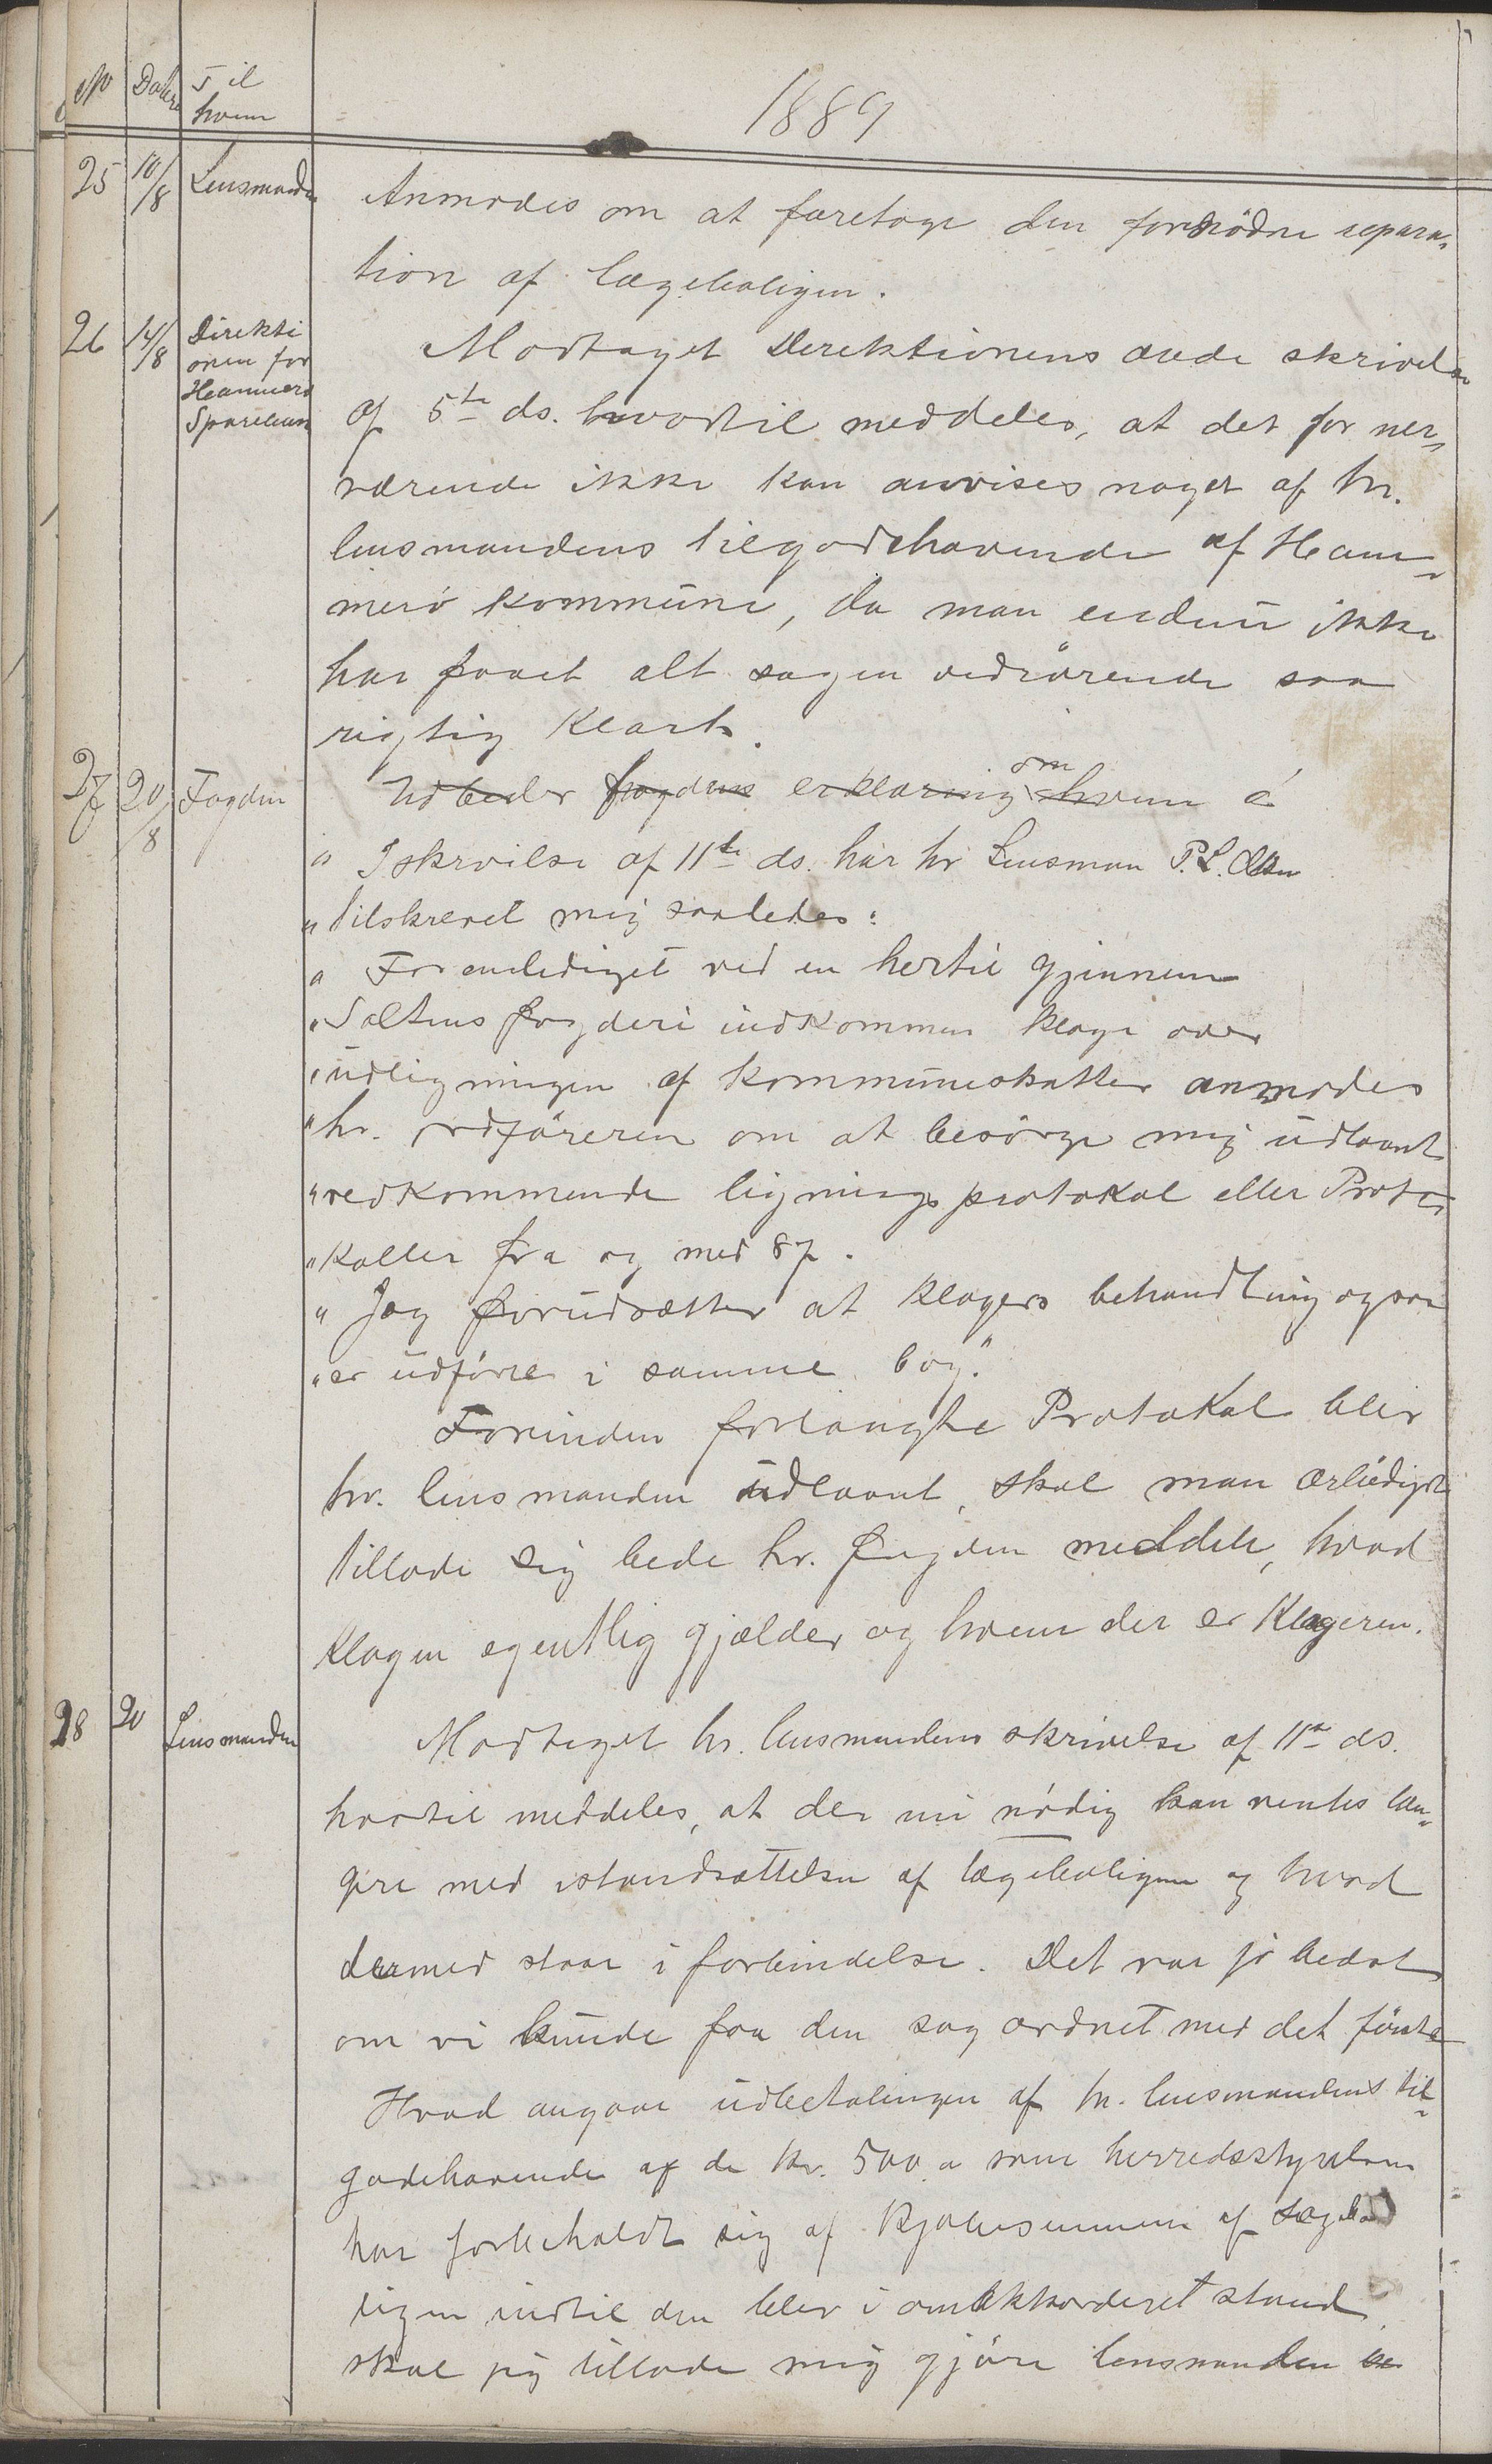 No Datum Til hvem
1889
25 10/8 Lensmanden
Anmodes om at foretage den fornödne repara-
tion af lægeboligen.
26 14/8 Direktionen for Hammerö Spareban
Modtaget Direktionens ærede skrivelse
af 5te ds. hvortil meddeles, at det for nær-
værende ikke kan anvises noget af hr.
lensmandens tilgodehavende af Ham-
merö kommune, da man endnu ikke
har faaet alt sagen vedrörende saa
rigtig klart.
27 20/8 Fogden
Udbeder fogdens erklæring om hvem
" I skrivelse af 11te ds. har hr Lensman P. L. Olsen
" tilskrevet mig saaledes:
" Foranlediget ved en hertil gjennem
" Saltens fogderi indkommen klage over
" udligningen af kommuneskatter anmodes
" hr. ordföreren om at besörge mig udlaant
" vedkommende ligningsprotokol eller Proto-
" koller fra og med 87.
" Jeg forudsætter at klagers behandling ogsaa
" er udförre i samme bog."
Forinden forlangte Protokol blir
hr. lensmanden udlaant, skal man ærbödigst
tillade sig bede hr. fogden meddele, hvad
klagen egentlig gjælder og hvem der er klageren.
28 20 Lensmanden
Modtaget hr. lensmandens skrivelse af 11te ds.
hvortil meddeles, at der nu nödig kan ventes læn-
gere med istandsættelsen af lægeboligen og hvad
dermed staar i forbindelse. Det var jo bedst
om vi kunde faa den sag ordnet med det förste
Hvad angaar udbetalingen af hr. lensmandens til-
godehavende af de kr. 500,00 som herredsstyrelsen
har forbeholdt sig af kjöbesummen af lægebo
ligen indtil den blev i omakkorderet stand,
skal jeg tillade mig gjöre lensmanden